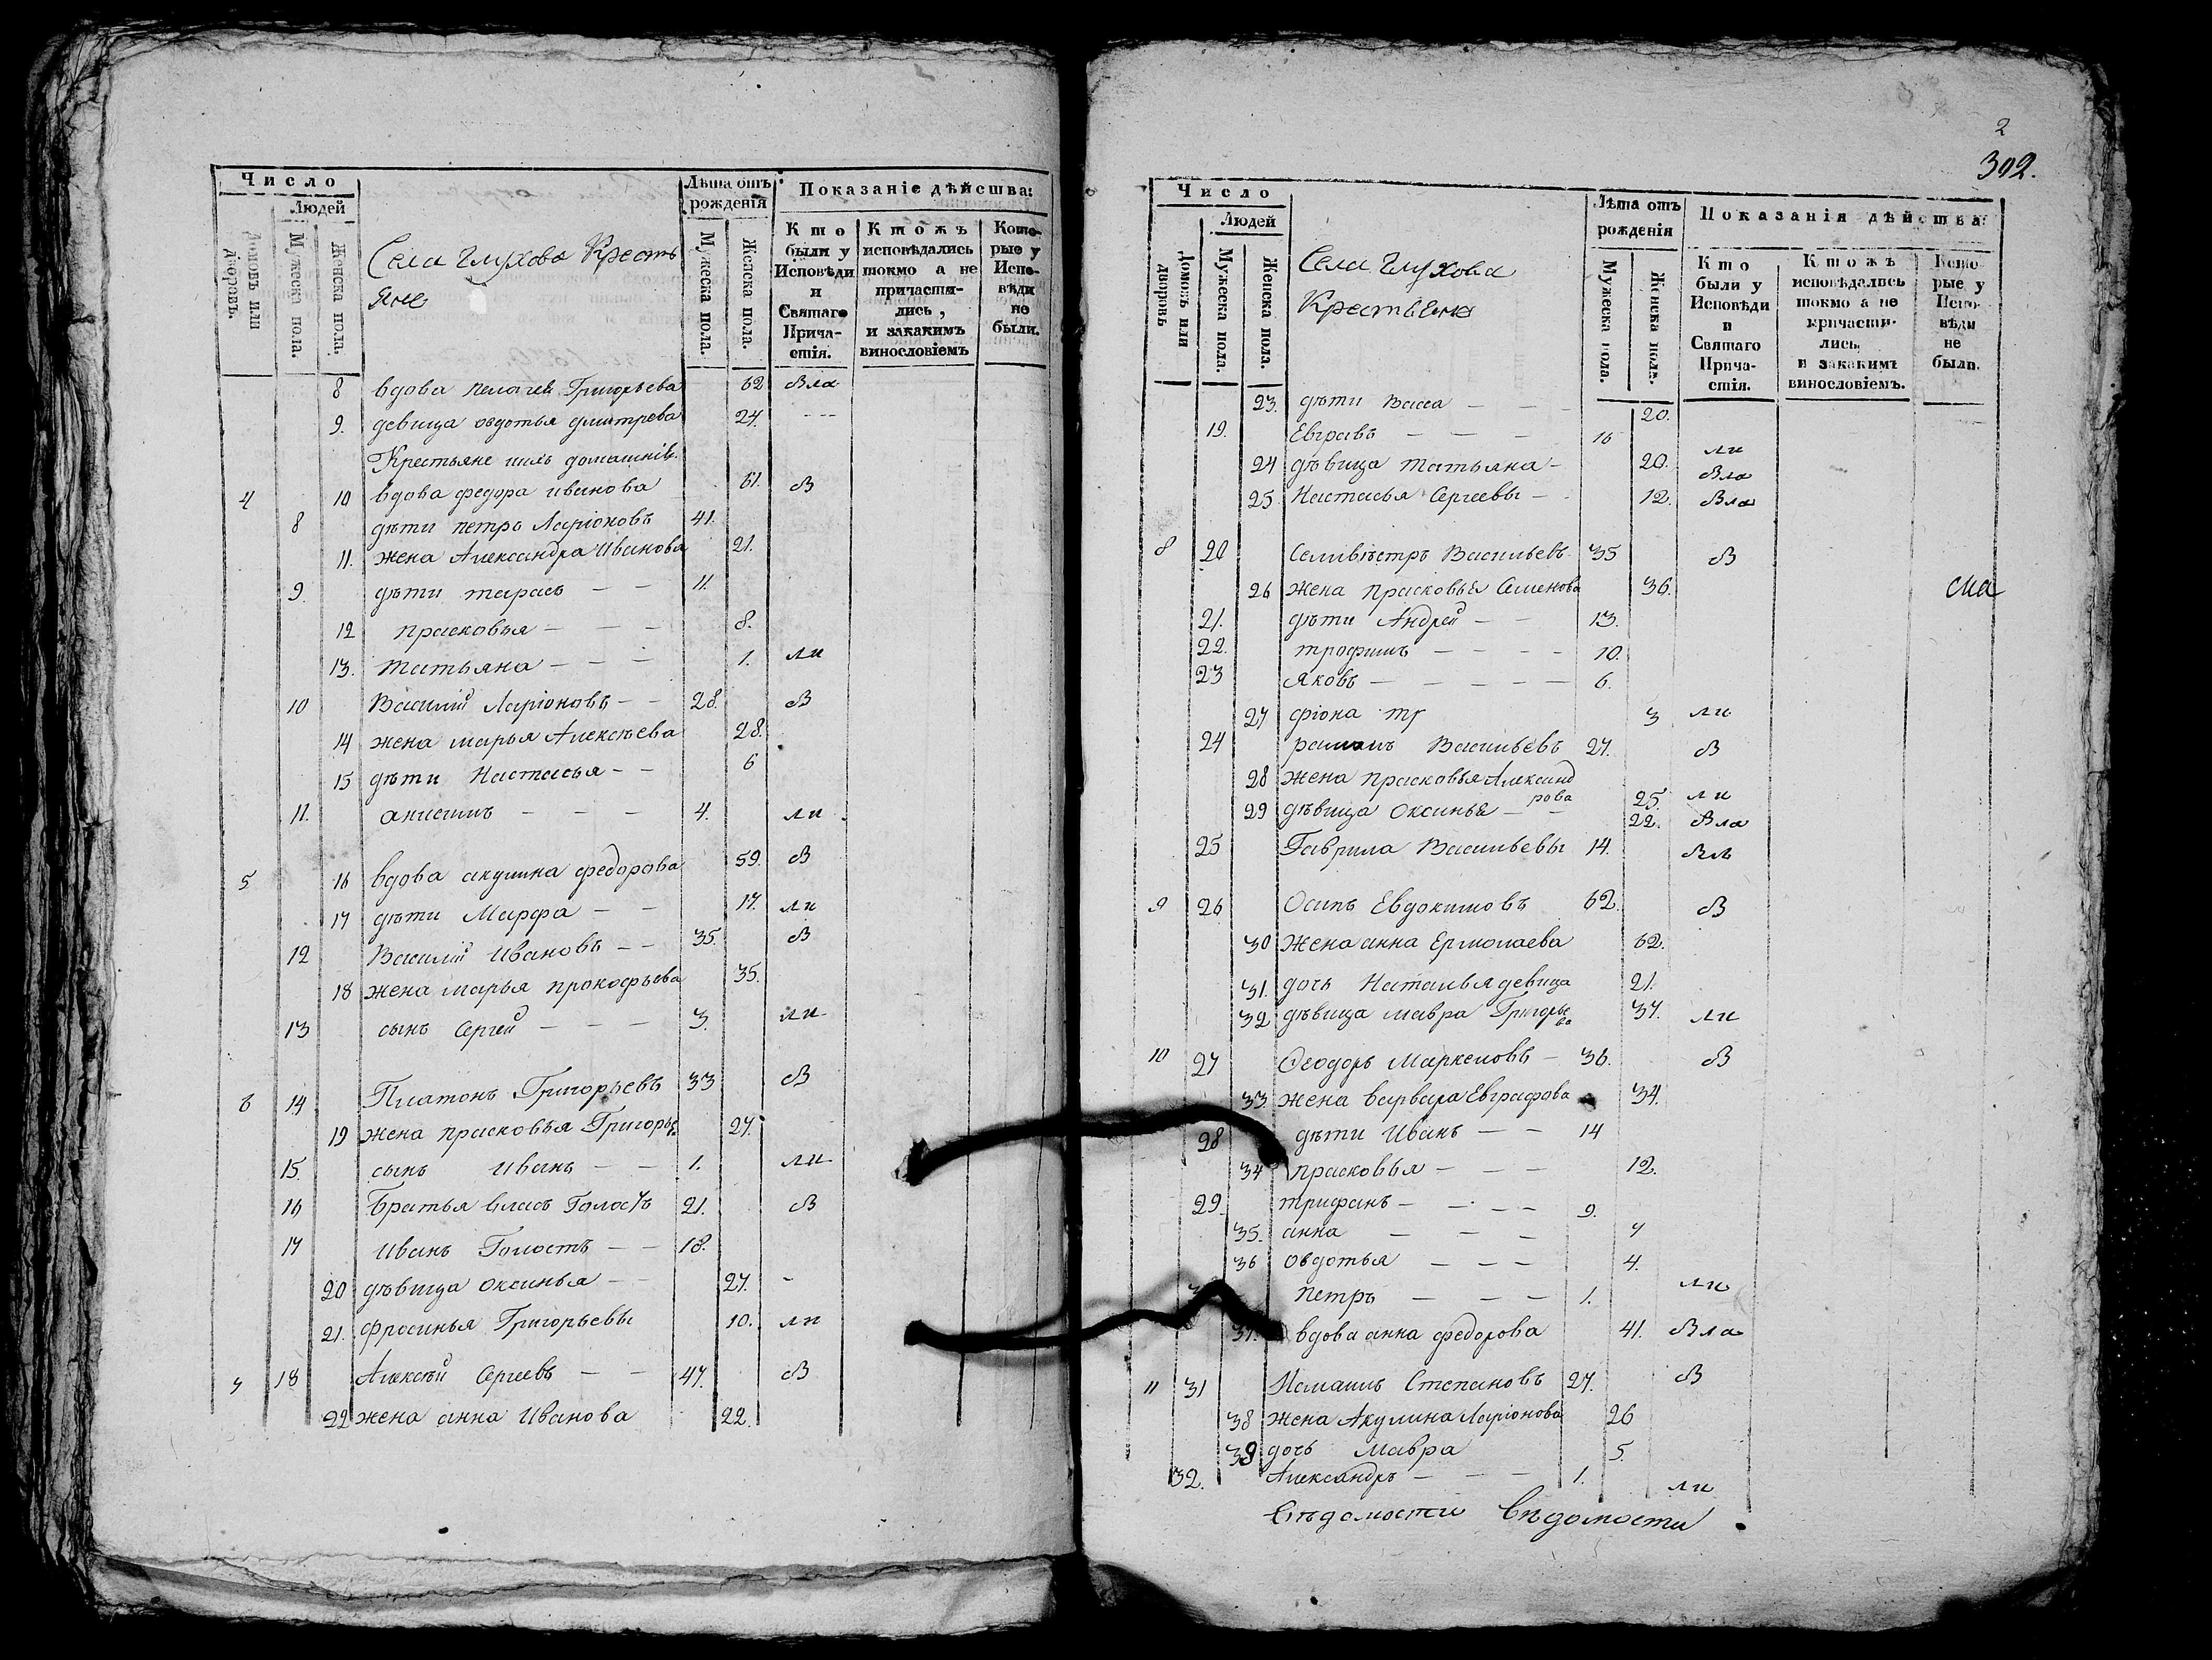 Число
Людей
Домовъ или дворовъ.
Мужеска пола.
Женска пола.
Села Глухова Кресть
яне
Лѣта отъ рожденія
Мужеска пола.
Женска пола.
Показаніе дѣйства:
Кто были у Исповѣди и Святаго Причастія.
Ктожъ исповѣдались токмо а не причастились, и закакимъ винословіемъ
Которые у Исповѣди не были.
8 вдова пелагея Григорьева 62 вла
9. девица овдотья дмитрева 24. - --
Крестьяне ихъ домашнів.
4 10 вдова федора иванова 61. В
8 дѣти петръ Ларіоновъ 41.
11. жена Александра Иванова 21.
9. дѣти тарасъ — — 11.
12 прасковья — — — 8.
13. татьяна — — — 1. ли
10 Василий Ларіоновъ — — 28. В
14 жена марья Алексѣева 28.
15 дѣти Настасья — — 6
11. анисимъ — — — 4. ли
5 16 вдова акулина федорова 59. В
17 дѣти Марфа — — 17. ли
12 Василий Ивановъ — — 35. В
18 жена марья прокофьева 35.
13 сынъ Сергей — — — 3. ли
6 14 Платонъ Григорьевъ 33 В
19 жена прасковья Григорье 27.
15. сынъ Иванъ — — 1. ли
16 Братья власъ Голостъ 21. В
17 Иванъ Голостъ — — 18.
20 дѣвица Оксинья — — 27. -
21. Фросинья Григорьевы 10. ли
7 18 Алексѣй Сергеевъ — — 47. В
22 жена анна Иванова 22.
2
392.
Число
Людей
Домовъ или дворовъ
Мужеска пола.
Женска пола.
Села Глухова
Крестьяне
Лѣта отъ рожденія
Мужеска пола.
Женска пола.
Показанія дѣйства:
Кто были у Исповѣди и Святаго Причастія.
Ктожъ исповѣдались токмо а не причастились, и закакимъ винословіемъ.
Которые у Исповѣди не были.
23. дѣти Васса — — — 20.
19. Евгравъ — — — 16 ли
24 дѣвица татьяна — 20. Вла
25 Настасья Сергеевы — 12. Вла
8 20 Селивѣстръ Васильевъ 35 В
26 жена прасковья Семенова 36. сиа
21. дѣти Андрей — — 13.
22. трофимъ — — — — 10.
23 Яковъ — — — — — 6.
27 фіона 3 ли
24 Васильевъ 27. В
28 жена прасковья Александ
рова 25. ли
29 дѣвица Оксинья — — 22. Вла
25 Гаврила Васильевы 14. Вла
9 26 Осипъ Евдокимовъ 62. В
30 жена анна Ермолаева 62.
31. дочь Наталья девица 21.
32 дѣвица мавра Григорье
ва 37. ли
10 27 Феодоръ Маркеловъ — 36. В
33 жена варвара Евграфова 34.
28 дѣти Иванъ — — 14
34 прасковья — — — 12.
29. трифанъ — — — — 9.
35. анна — — — 7
36 овдотья — — — 4.
петръ — — — 1. ли
37. вдова анна федорова 41. Вла
11 31 Степановъ 27. В
38 жена Акулина Ларіонова 26
39 дочь мавра 5.
32. Александръ — — — 1. ли
Вѣдомости Вѣдомости